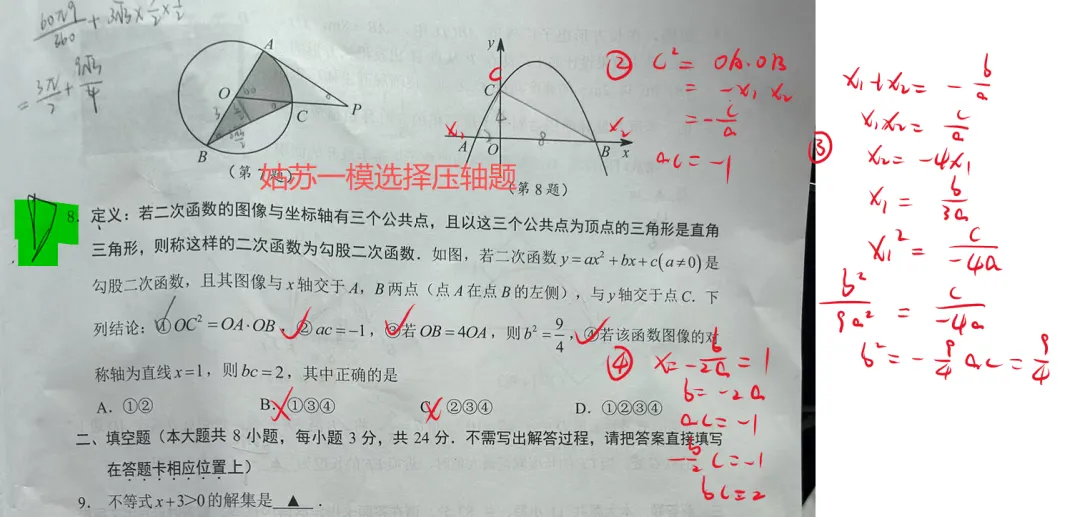 60π9/360 + 3√3×1/2×1/2
= 3π/2 + 9√3/4
A
O
60
3
B
C
P
(第7题)
y
C
C
x₁
A
O
2
8
B
x₂
x
(第8题)
姑苏一模选择压轴题
② C² = OA·OB
= -x₁ x₂
= -c/a
ac = -1
③
x₁+x₂ = -b/a
x₁x₂ = c/a
x₂ = -4x₁
x₁ = b/3a
x₁² = c/-4a
b²/9a² = c/-4a
b² = -9/4 ac = 9/4
8. 定义：若二次函数的图像与坐标轴有三个公共点，且以这三个公共点为顶点的三角形是直角
三角形，则称这样的二次函数为勾股二次函数．如图，若二次函数 y=ax²+bx+c(a≠0)是
勾股二次函数，且其图像与 x 轴交于 A，B 两点（点 A 在点 B 的左侧），与 y 轴交于点 C．下
列结论：① OC²=OA·OB，② ac=-1，③若 OB=4OA，则 b²=9/4，④若该函数图像的对
称轴为直线 x=1，则 bc=2，其中正确的是
A．①② B．①③④ C．②③④ D．①②③④
④ x = b/-2a = 1
b = -2a
ac = -1
-b/2 c = -1
bc = 2
二、填空题（本大题共 8 小题，每小题 3 分，共 24 分．不需写出解答过程，请把答案直接填写
在答题卡相应位置上）
9．不等式 x+3>0 的解集是 ▲ ．